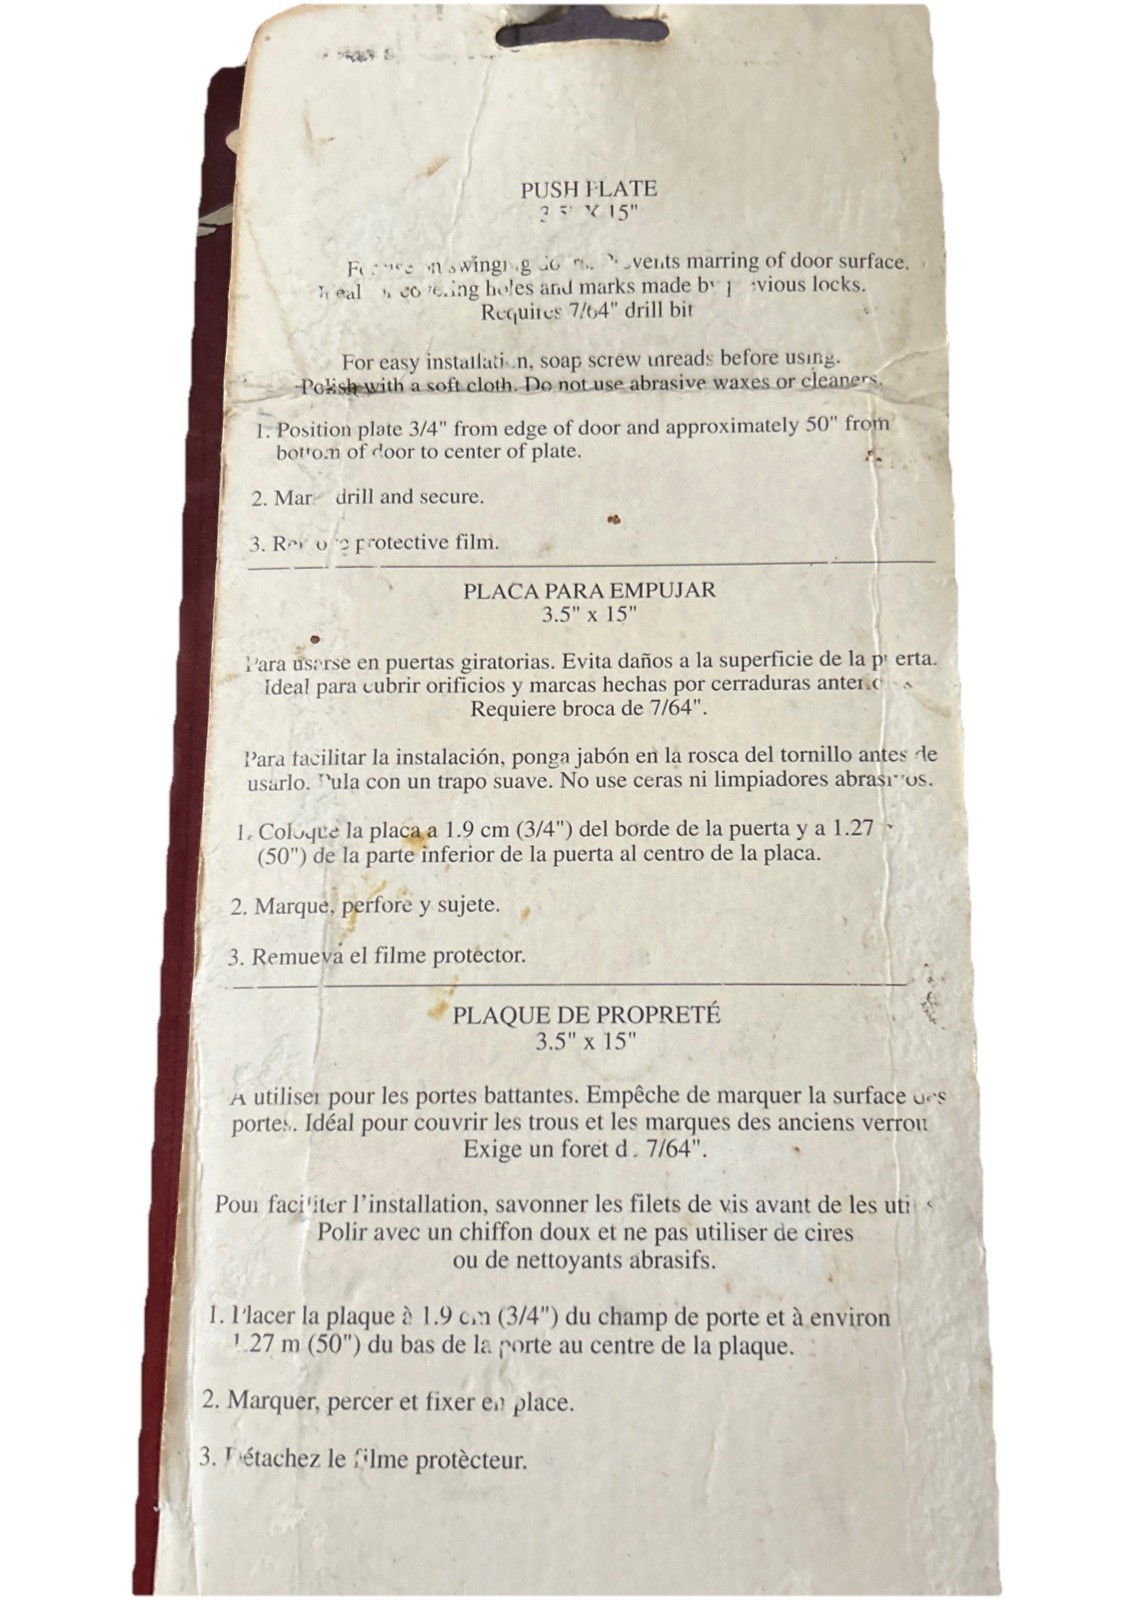 PUSH PLATE
3.5" X 15"
For use on swinging doors. Prevents marring of door surface.
Ideal covering holes and marks made by previous locks.
Requires 7/64" drill bit
For easy installation, soap screw threads before using.
Polish with a soft cloth. Do not use abrasive waxes or cleaners.
1. Position plate 3/4" from edge of door and approximately 50" from
bottom of door to center of plate.
2. Mark drill and secure.
3. Remove protective film.
PLACA PARA EMPUJAR
3.5" x 15"
Para usarse en puertas giratorias. Evita daños a la superficie de la puerta.
Ideal para cubrir orificios y marcas hechas por cerraduras
Requiere broca de 7/64".
Para facilitar la instalación, ponga jabón en la rosca del tornillo antes de
usarlo. Pula con un trapo suave. No use ceras ni limpiadores abrasivos.
1. Coloque la placa a 1.9 cm (3/4") del borde de la puerta y a 1.27
(50") de la parte inferior de la puerta al centro de la placa.
2. Marque, perfore y sujete.
3. Remueva el filme protector.
PLAQUE DE PROPRETÉ
3.5" x 15"
A utiliser pour les portes battantes. Empêche de marquer la surface des
portes. Idéal pour couvrir les trous et les marques des anciens
Exige un foret de 7/64".
Pour faciliter l'installation, savonner les filets de vis avant de les
Polir avec un chiffon doux et ne pas utiliser de cires
ou de nettoyants abrasifs.
1. Placer la plaque à 1.9 cm (3/4") du champ de porte et à environ
1.27 m (50") du bas de la porte au centre de la plaque.
2. Marquer, percer et fixer en place.
3. Détachez le filme protècteur.